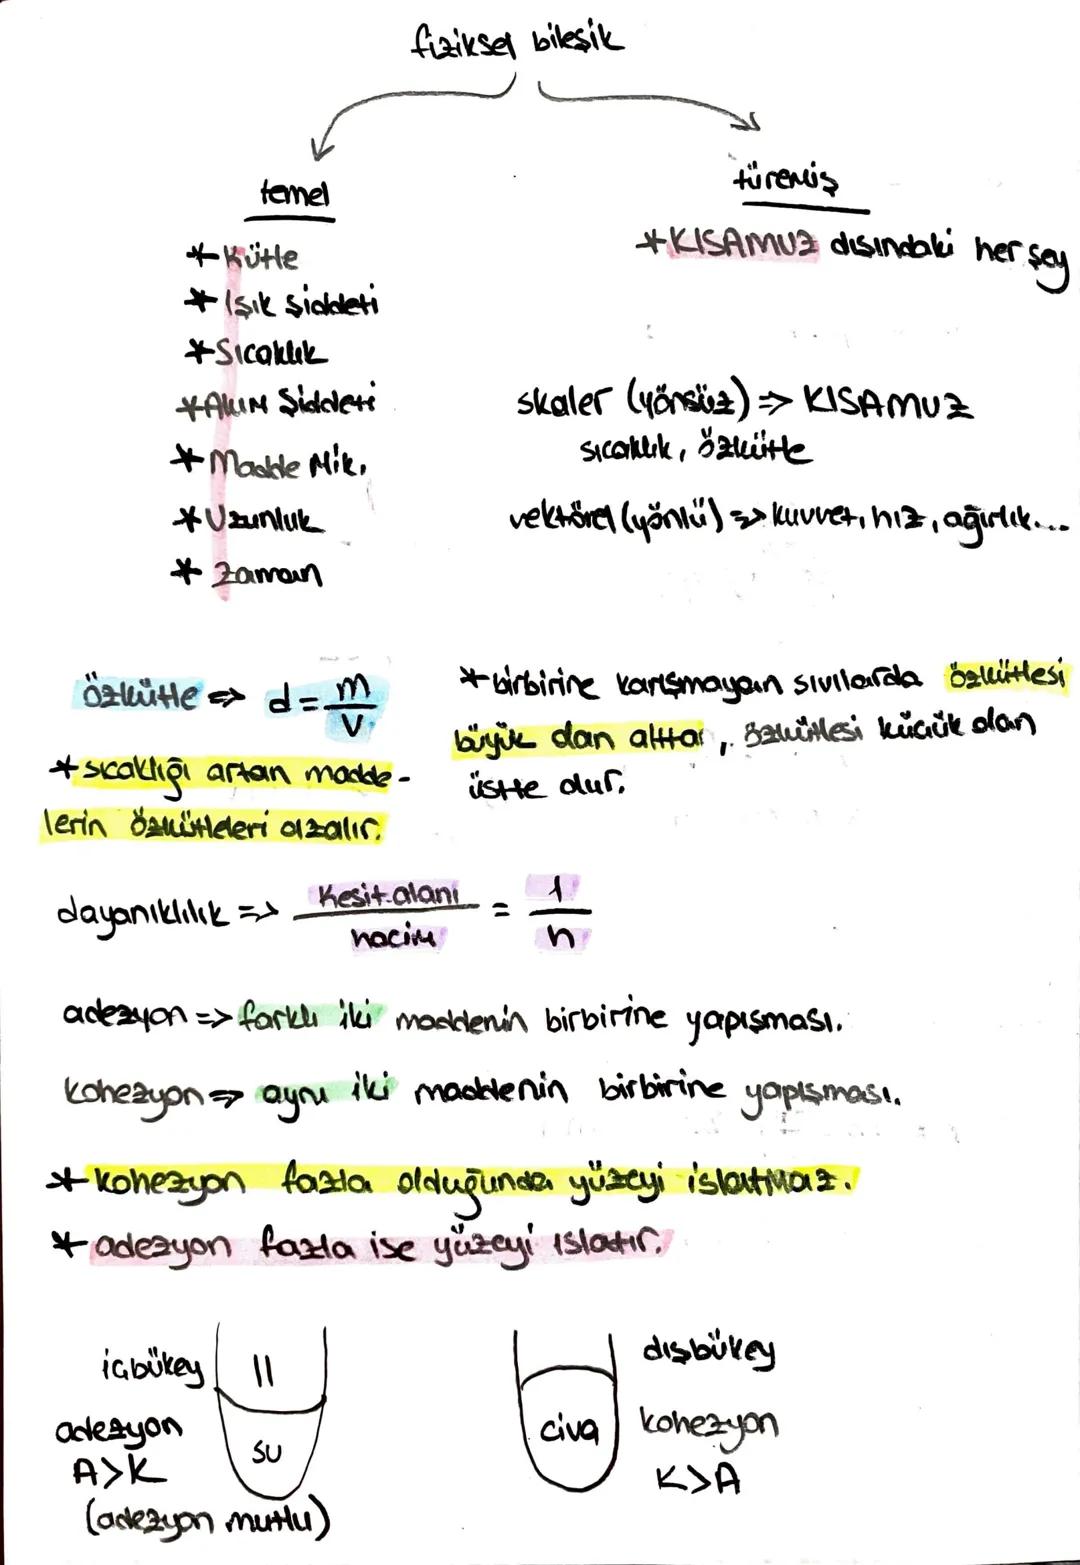 fiziksel bileşik
temel
* Kütle
* Işık Şiddeti
* Sıcaklık
* Akım Şiddeti
* Madde Mik.
* Uzunluk
* Zaman
türemiş
* KISAMUZ dışındaki her şey
skaler (yönsüz) => KISAMUZ
sıcaklık, özkütle
vektörel (yönlü) => kuvvet, hız, ağırlık...
özkütle => d = m
V
* sıcaklığı artan madde-
lerin özkütleleri azalır.
* birbirine karışmayan sıvılarda özkütlesi
büyük olan altta, özkütlesi küçük olan
üstte olur.
dayanıklılık => Kesit alanı = 1
hacim h
adezyon => farklı iki maddenin birbirine yapışması.
kohezyon => aynı iki maddenin birbirine yapışması.
* kohezyon fazla olduğunda yüzeyi ıslatmaz.
* adezyon fazla ise yüzeyi ıslatır.
içbükey
adezyon
A>K
(adezyon mutlu)
su
civa
dışbükey
kohezyon
K>A